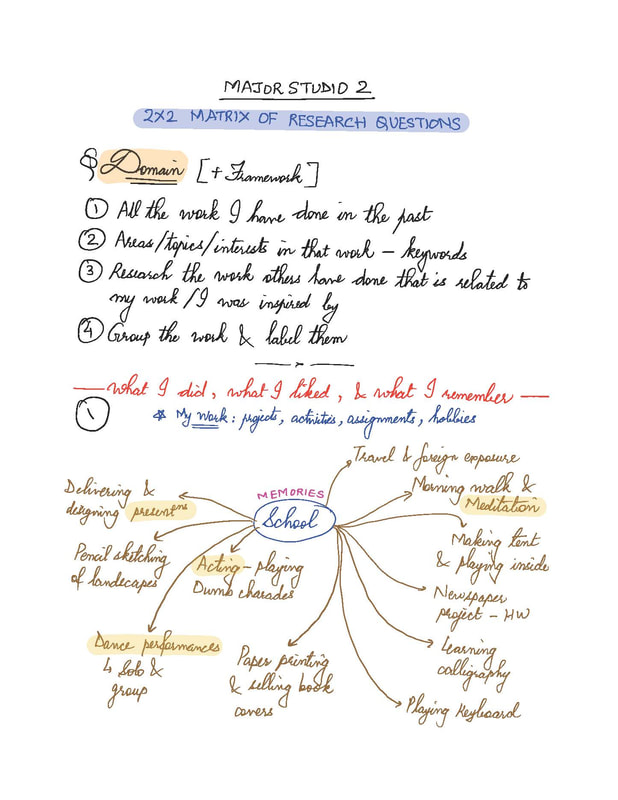 MAJOR STUDIO 2
2X2 MATRIX OF RESEARCH QUESTIONS
Domain [+ Framework]
1 All the work I have done in the past
2 Areas/topics/interests in that work – keywords
3 Research the work others have done that is related to
my work/I was inspired by
4 Group the work & label them
— what I did, what I liked, & what I remember —
1
* My work: projects, activities, assignments, hobbies
Travel & foreign exposure
Morning walk &
Meditation
Delivering &
designing
MEMORIES
School
Making tent
& playing inside
Pencil sketching
of landscapes
Acting – playing
Dumb charades
Newspaper
project – HW
Dance performances
↳ Solo &
group
Paper printing
& selling book
covers
Learning
calligraphy
Playing Keyboard